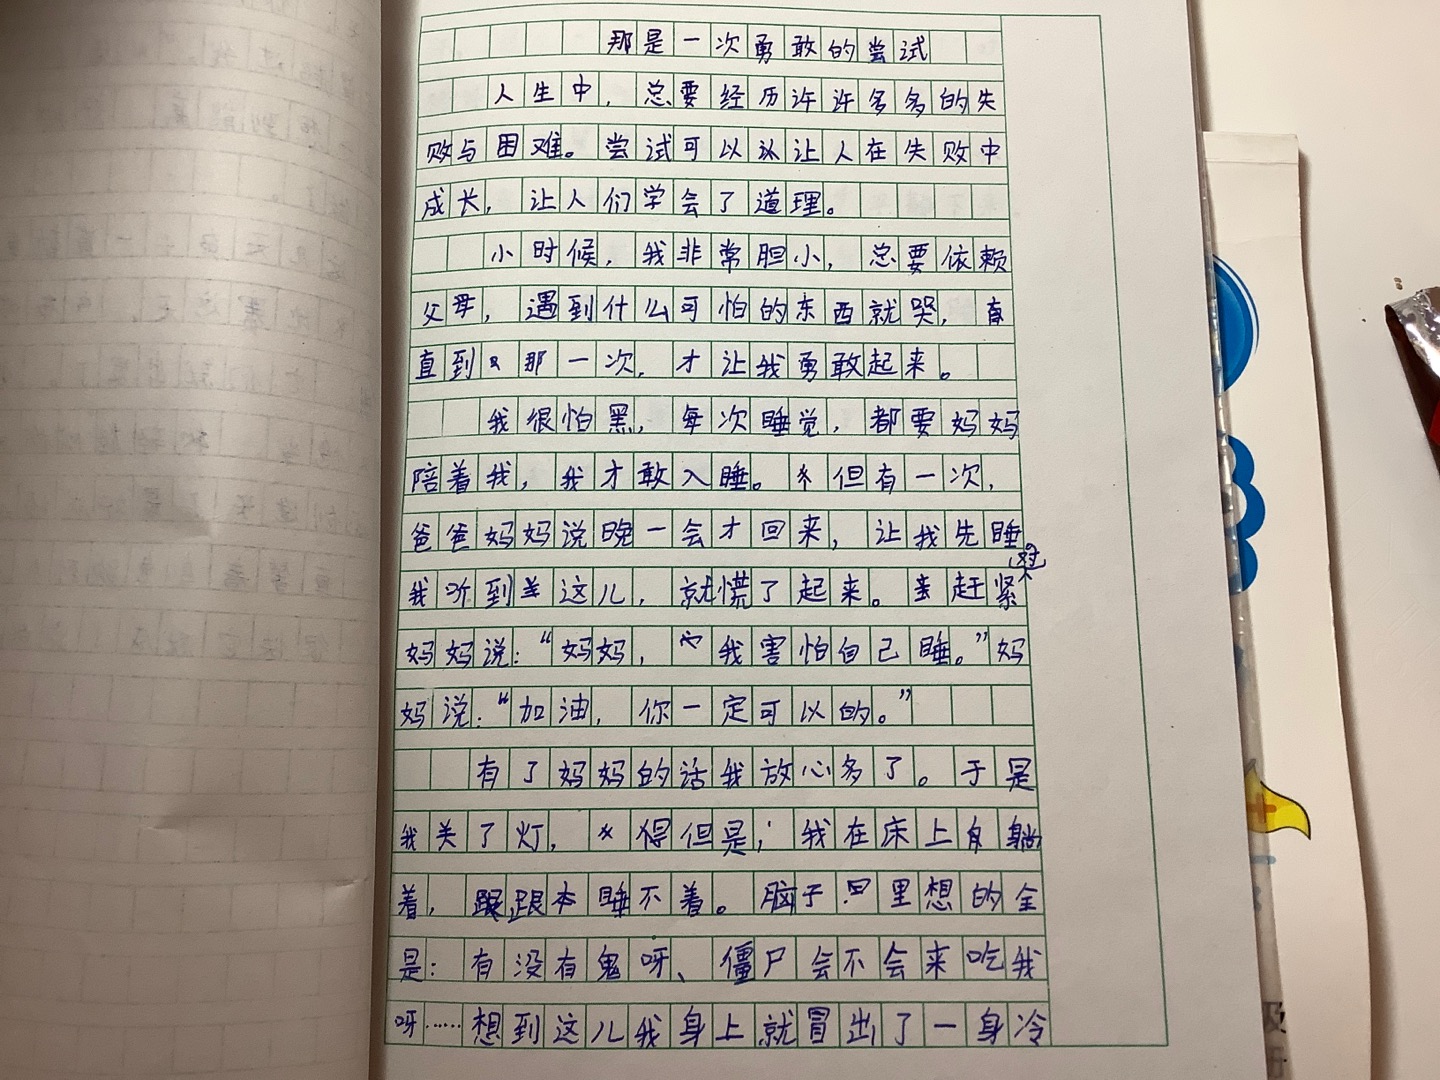 那是一次勇敢的尝试
人生中，总要经历许许多多的失
败与困难。尝试可以让人在失败中
成长，让人们学会了道理。
小时候，我非常胆小，总要依赖
父母，遇到什么可怕的东西就哭，
直到那一次，才让我勇敢起来。
我很怕黑，每次睡觉，都要妈妈
陪着我，我才敢入睡。但有一次，
爸爸妈妈说晚一会才回来，让我先睡
我听到这儿，就慌了起来。赶紧对
妈妈说：“妈妈，我害怕自己睡。”妈
妈说：“加油，你一定可以的。”
有了妈妈的话我放心多了。于是
我关了灯，但是；我在床上躺
着，跟本睡不着。脑子里想的全
是：有没有鬼呀、僵尸会不会来吃我
呀……想到这儿我身上就冒出了一身冷